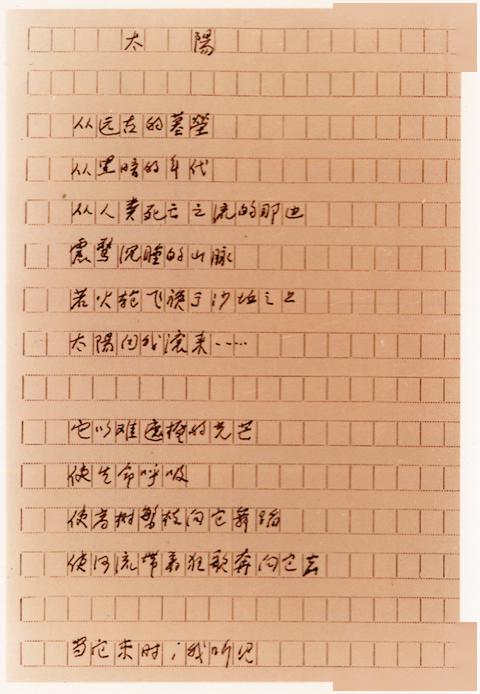 太陽
从远古的墓茔
从黑暗的年代
从人类死亡之流的那边
震惊沉睡的山脉
若火轮飞旋于沙丘之上
太陽向我滚来……
它以难遮掩的光芒
使生命呼吸
使高树繁枝向它舞蹈
使河流带着狂歌奔向它去
当它来时，我听见